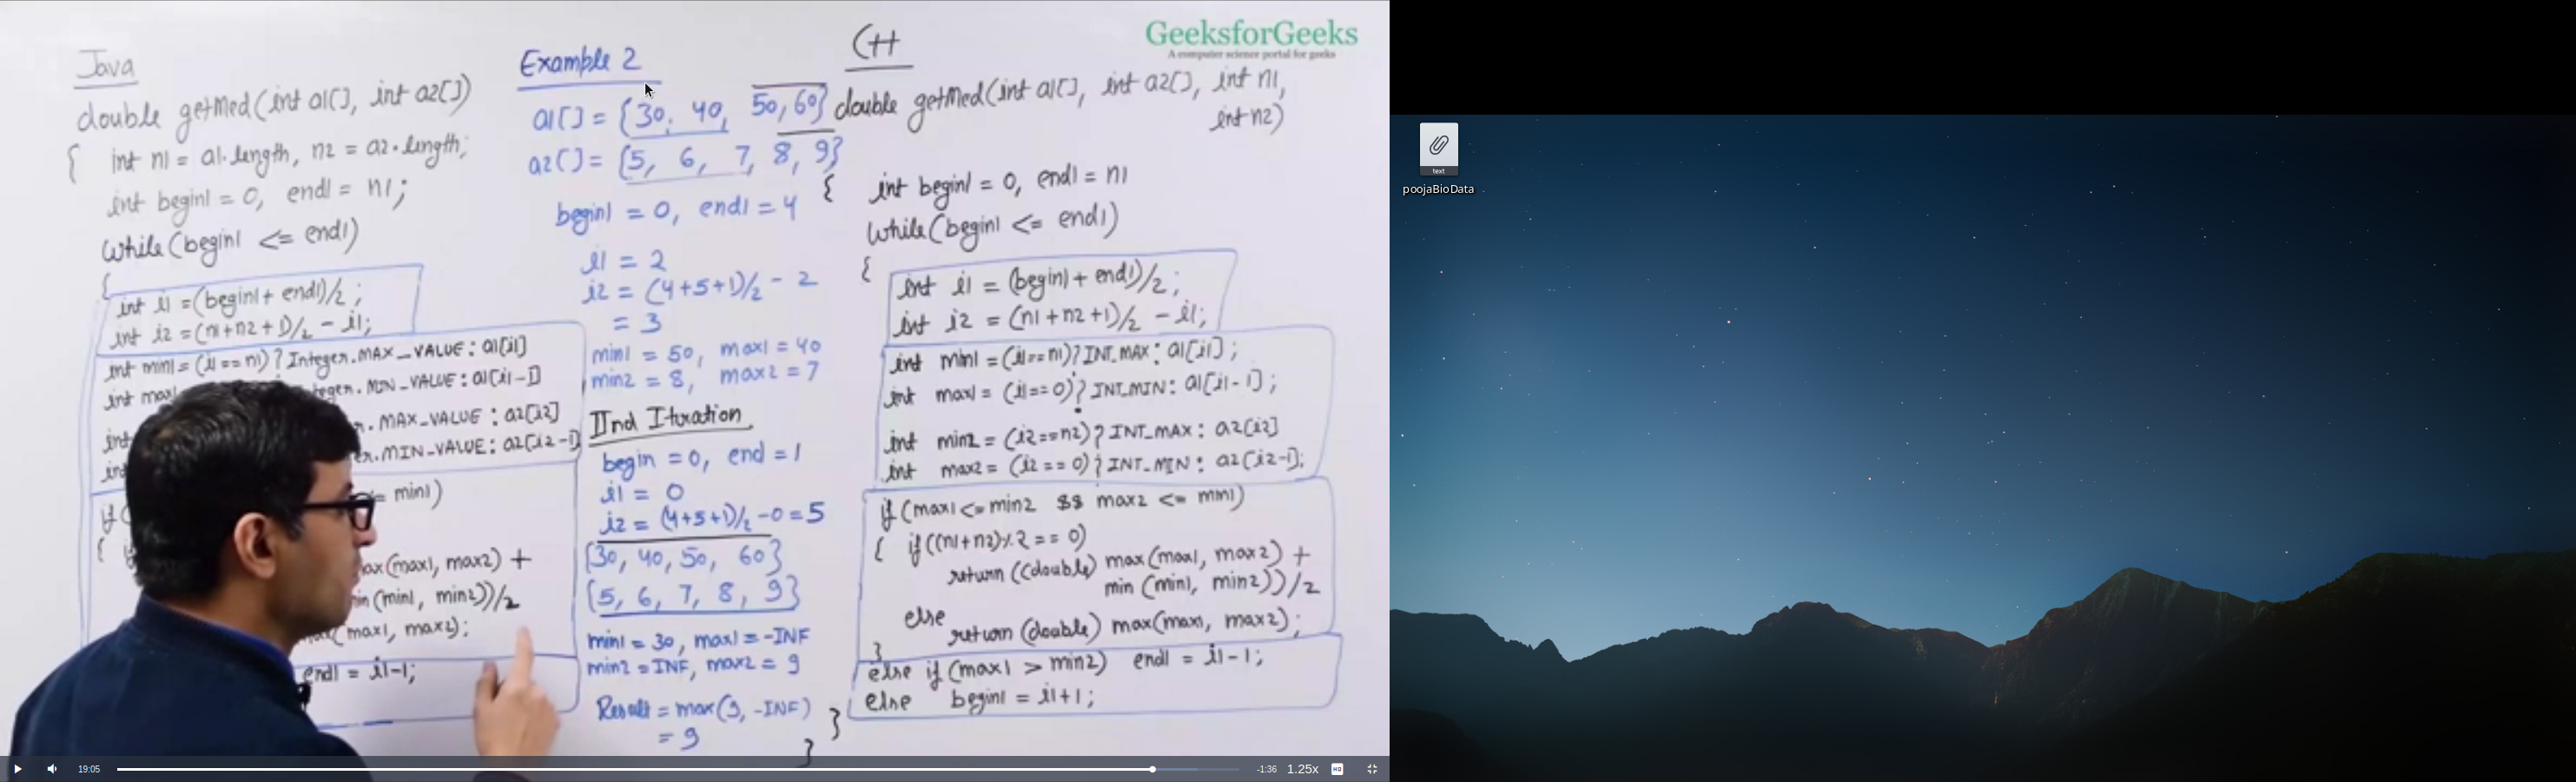 GeeksforGeeks
A computer science portal for geeks
Java
double getMed(int a1[], int a2[])
{ int n1 = a1.length, n2 = a2.length;
int begin1 = 0, end1 = n1;
while(begin1 <= end1)
{
int i1 = (begin1 + end1)/2;
int i2 = (n1+n2+1)/2 - i1;
int min1 = (i1 == n1) ? Integer.MAX_VALUE : a1[i1]
int max1
teger.MIN_VALUE : a1[i1-1]
int
r. MAX_VALUE : a2[i2]
int
er.MIN_VALUE : a2[i2-1]
if (
<= min1)
{
max(max1, max2) +
min(min1, min2))/2
max(max1, max2);
end1 = i1-1;
Example 2
a1[] = {30, 40, 50, 60}
a2[] = {5, 6, 7, 8, 9}
begin1 = 0, end1 = 4
i1 = 2
i2 = (4+5+1)/2 - 2
= 3
min1 = 50, max1 = 40
min2 = 8, max2 = 7
IInd Iteration
begin = 0, end = 1
i1 = 0
i2 = (4+5+1)/2 - 0 = 5
{30, 40, 50, 60}
{5, 6, 7, 8, 9}
min1 = 30, max1 = -INF
min2 = INF, max2 = 9
Result = max(9, -INF)
= 9
C++
double getMed(int a1[], int a2[], int n1,
int n2)
{ int begin1 = 0, end1 = n1
while(begin1 <= end1)
{
int i1 = (begin1 + end1)/2;
int i2 = (n1 + n2 + 1)/2 - i1;
int min1 = (i1 == n1) ? INT_MAX : a1[i1];
int max1 = (i1 == 0) ? INT_MIN : a1[i1-1];
int min2 = (i2 == n2) ? INT_MAX : a2[i2]
int max2 = (i2 == 0) ? INT_MIN : a2[i2-1];
if (max1 <= min2 && max2 <= min1)
{ if ((n1+n2)%2 == 0)
return ((double) max(max1, max2) +
min (min1, min2))/2
else
return (double) max(max1, max2);
}
else if (max1 > min2) end1 = i1-1;
else begin1 = i1+1;
}
}
19:05
-1:36
1.25x
HD
text
poojaBioData